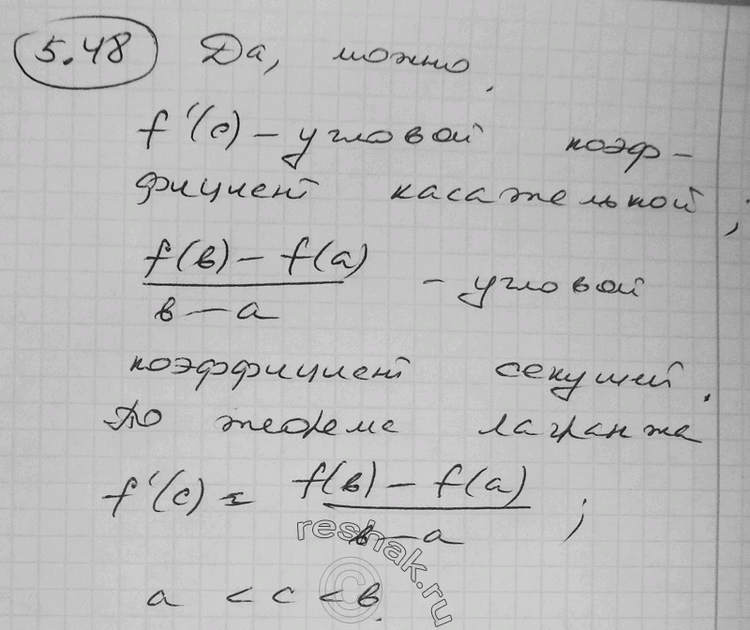 5.48 Да, можно.
f'(c) – угловой коэф-
фициент касательной;
f(в) – f(a)
в – a
– угловой
коэффициент секущей.
По теореме лагранжа
f'(c) = f(в) – f(a) ;
в – a
a < c < в.
reshak.ru
©